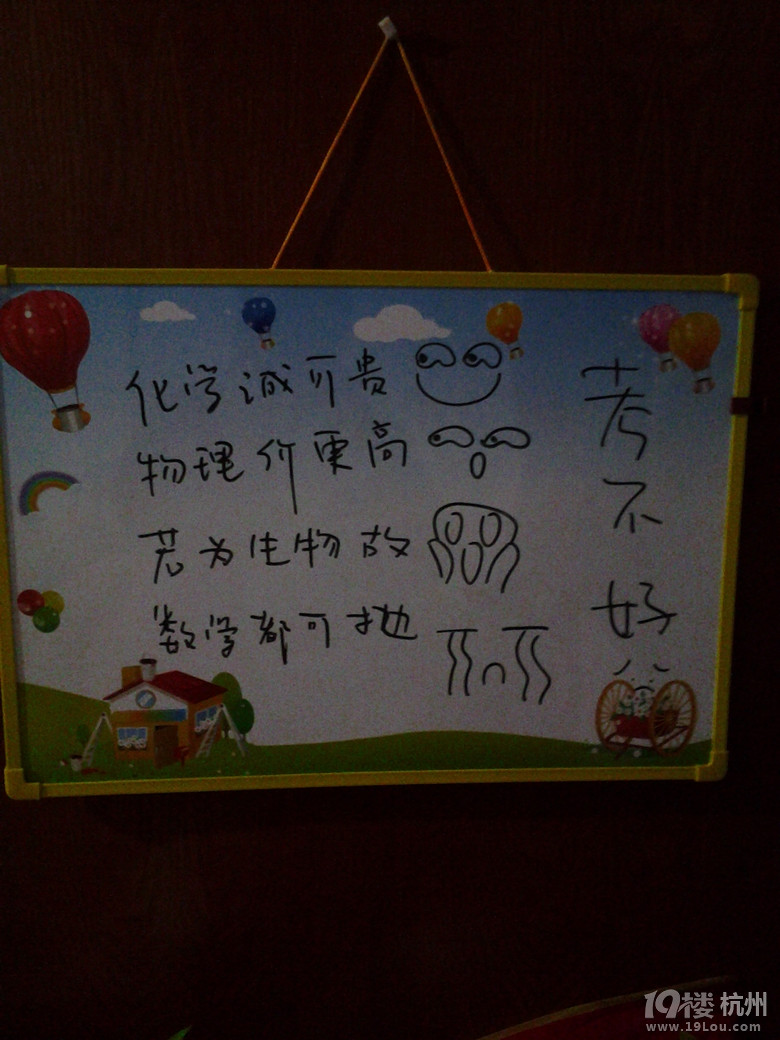 化学诚可贵
物理价更高
若为生物故
数学都可抛
考不好
19楼 杭州
www.19Lou.com